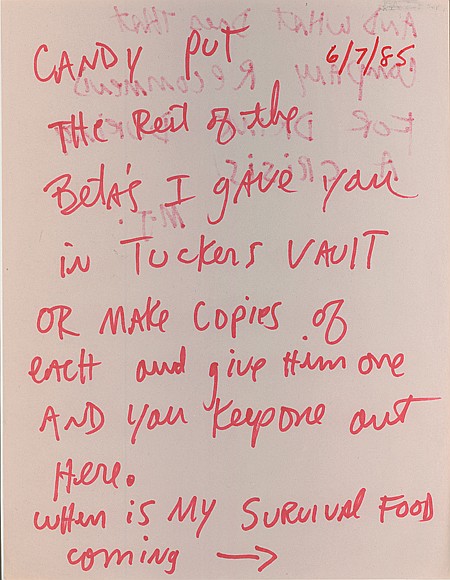 CANDY PUT 6/7/85
THE Rest of the
Beta's I gave you
in Tuckers VAULT
OR MAKE Copies of
EACH and give Him one
AND you Keep one out
Here.
WHEN is MY SURVIVAL FOOD
coming →